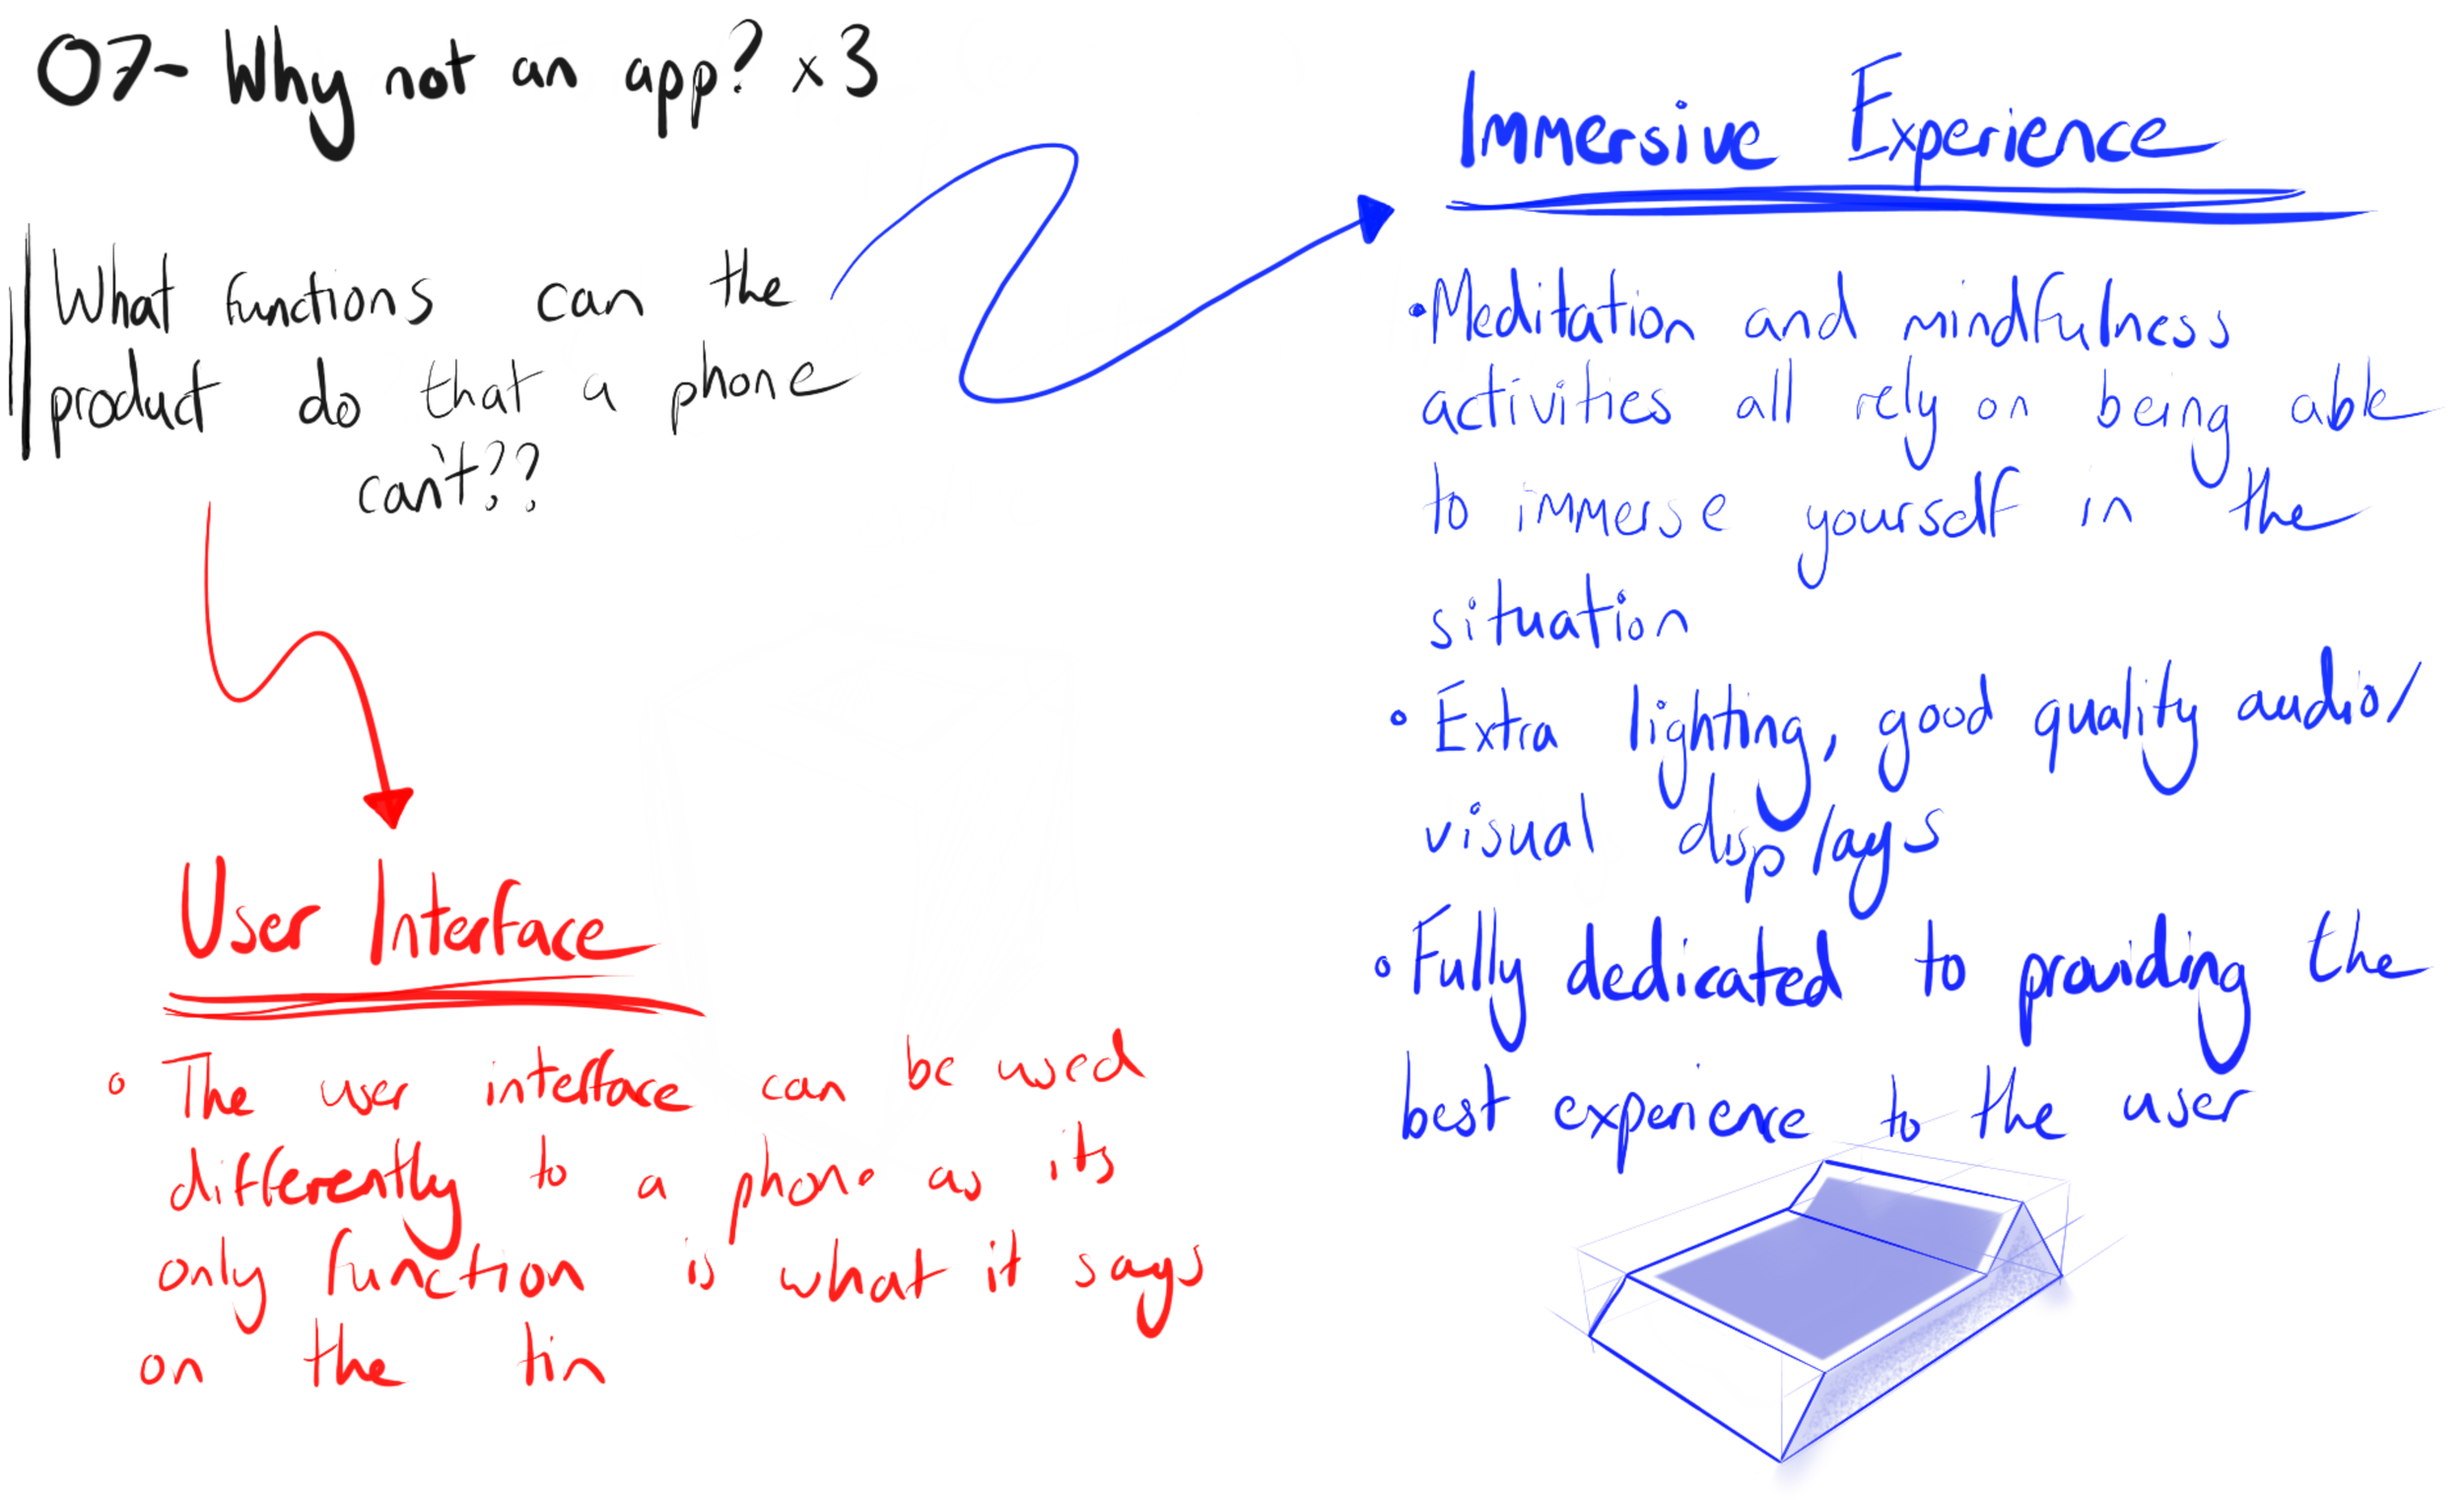 07- Why not an app? x3
What functions can the
product do that a phone
can't??
Immersive Experience
•Meditation and mindfulness
activities all rely on being able
to immerse yourself in the
situation
• Extra lighting, good quality audio/
visual displays
• Fully dedicated to providing the
best experience to the user
User Interface
• The user interface can be used
differently to a phone as its
only function is what it says
on the tin